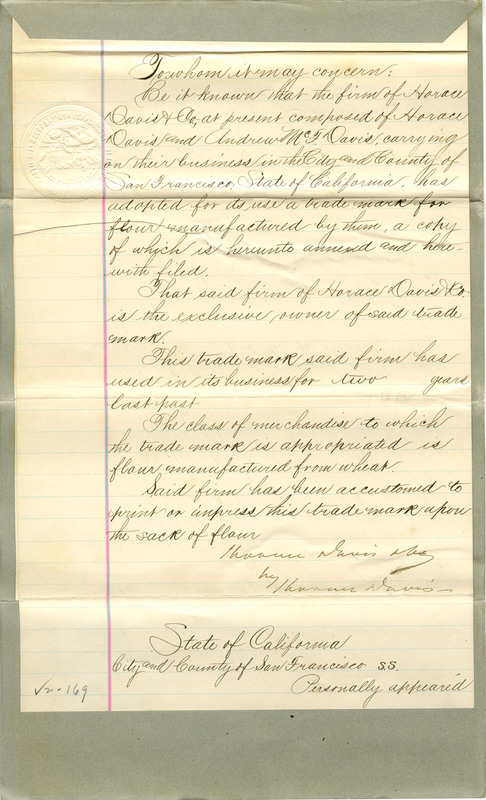 To whom it may concern:
Be it known that the firm of Horace
Davis & Co, at present composed of Horace
Davis and Andrew McF. Davis, carrying
on their business in the City and County of
San Francisco, State of California, has
adopted for its use a trade mark for
flour manufactured by them, a copy
of which is hereunto annexed and here-
with filed.
That said firm of Horace Davis & Co.
is the exclusive owner of said trade
mark.
This trade mark said firm has
used in its business for two years
last past
The class of merchandise to which
the trade mark is appropriated is
flour manufactured from wheat.
Said firm has been accustomed to
print or impress this trade mark upon
the sack of flour
Horace Davis & Co
by Horace Davis
State of California
City and County of San Francisco SS.
Personally appeared
169